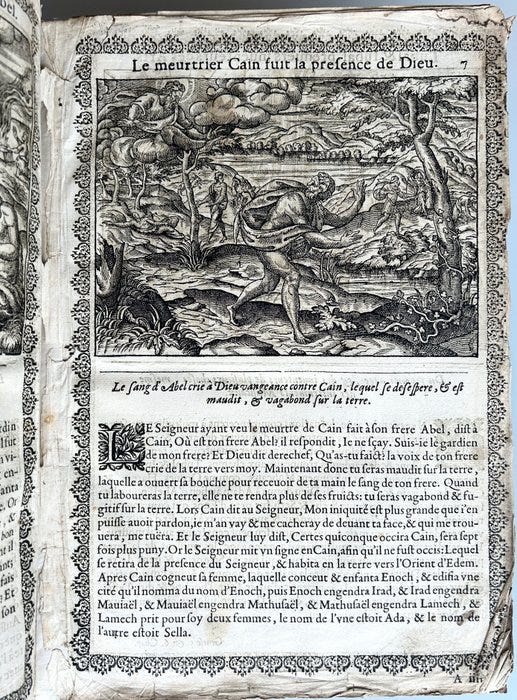 Abel
Le meurtrier Cain fuit la presence de Dieu. 7
Le sang d'Abel crie à Dieu vangeance contre Cain, lequel se desespere, & est
maudit, & vagabond sur la terre.
LE Seigneur ayant veu le meurtre de Cain fait à son frere Abel, dist à
Cain, Où est ton frere Abel? il respondit, Ie ne sçay. Suis-ie le gardien
de mon frere? Et Dieu dit derechef, Qu'as-tu faict? la voix de ton frere
crie de la terre vers moy. Maintenant donc tu seras maudit sur la terre,
laquelle a ouuert sa bouche pour receuoir de ta main le sang de ton frere. Quand
tu laboureras la terre, elle ne te rendra plus de ses fruicts: tu seras vagabond & fu-
gitif sur la terre. Lors Cain dit au Seigneur, Mon iniquité est plus grande que i'en
puisse auoir pardon, ie m'an vay & me cacheray de deuant ta face, & qui me trou-
uera, me tuëra. Et le Seigneur luy dist, Certes quiconque occira Cain, sera sept
fois plus puny. Or le Seigneur mit vn signe en Cain, afin qu'il ne fust occis: Lequel
se retira de la presence du Seigneur, & habita en la terre vers l'Orient d'Edem.
Apres Cain cogneut sa femme, laquelle conceut & enfanta Enoch, & edifia vne
cité qu'il nomma du nom d'Enoch, puis Enoch engendra Irad, & Irad engendra
Mauiaël, & Mauiaël engendra Mathusaël, & Mathusaël engendra Lamech, & La-
mech prit pour soy deux femmes, le nom de l'vne estoit Ada, & le nom de
l'autre estoit Sella.
A iiii